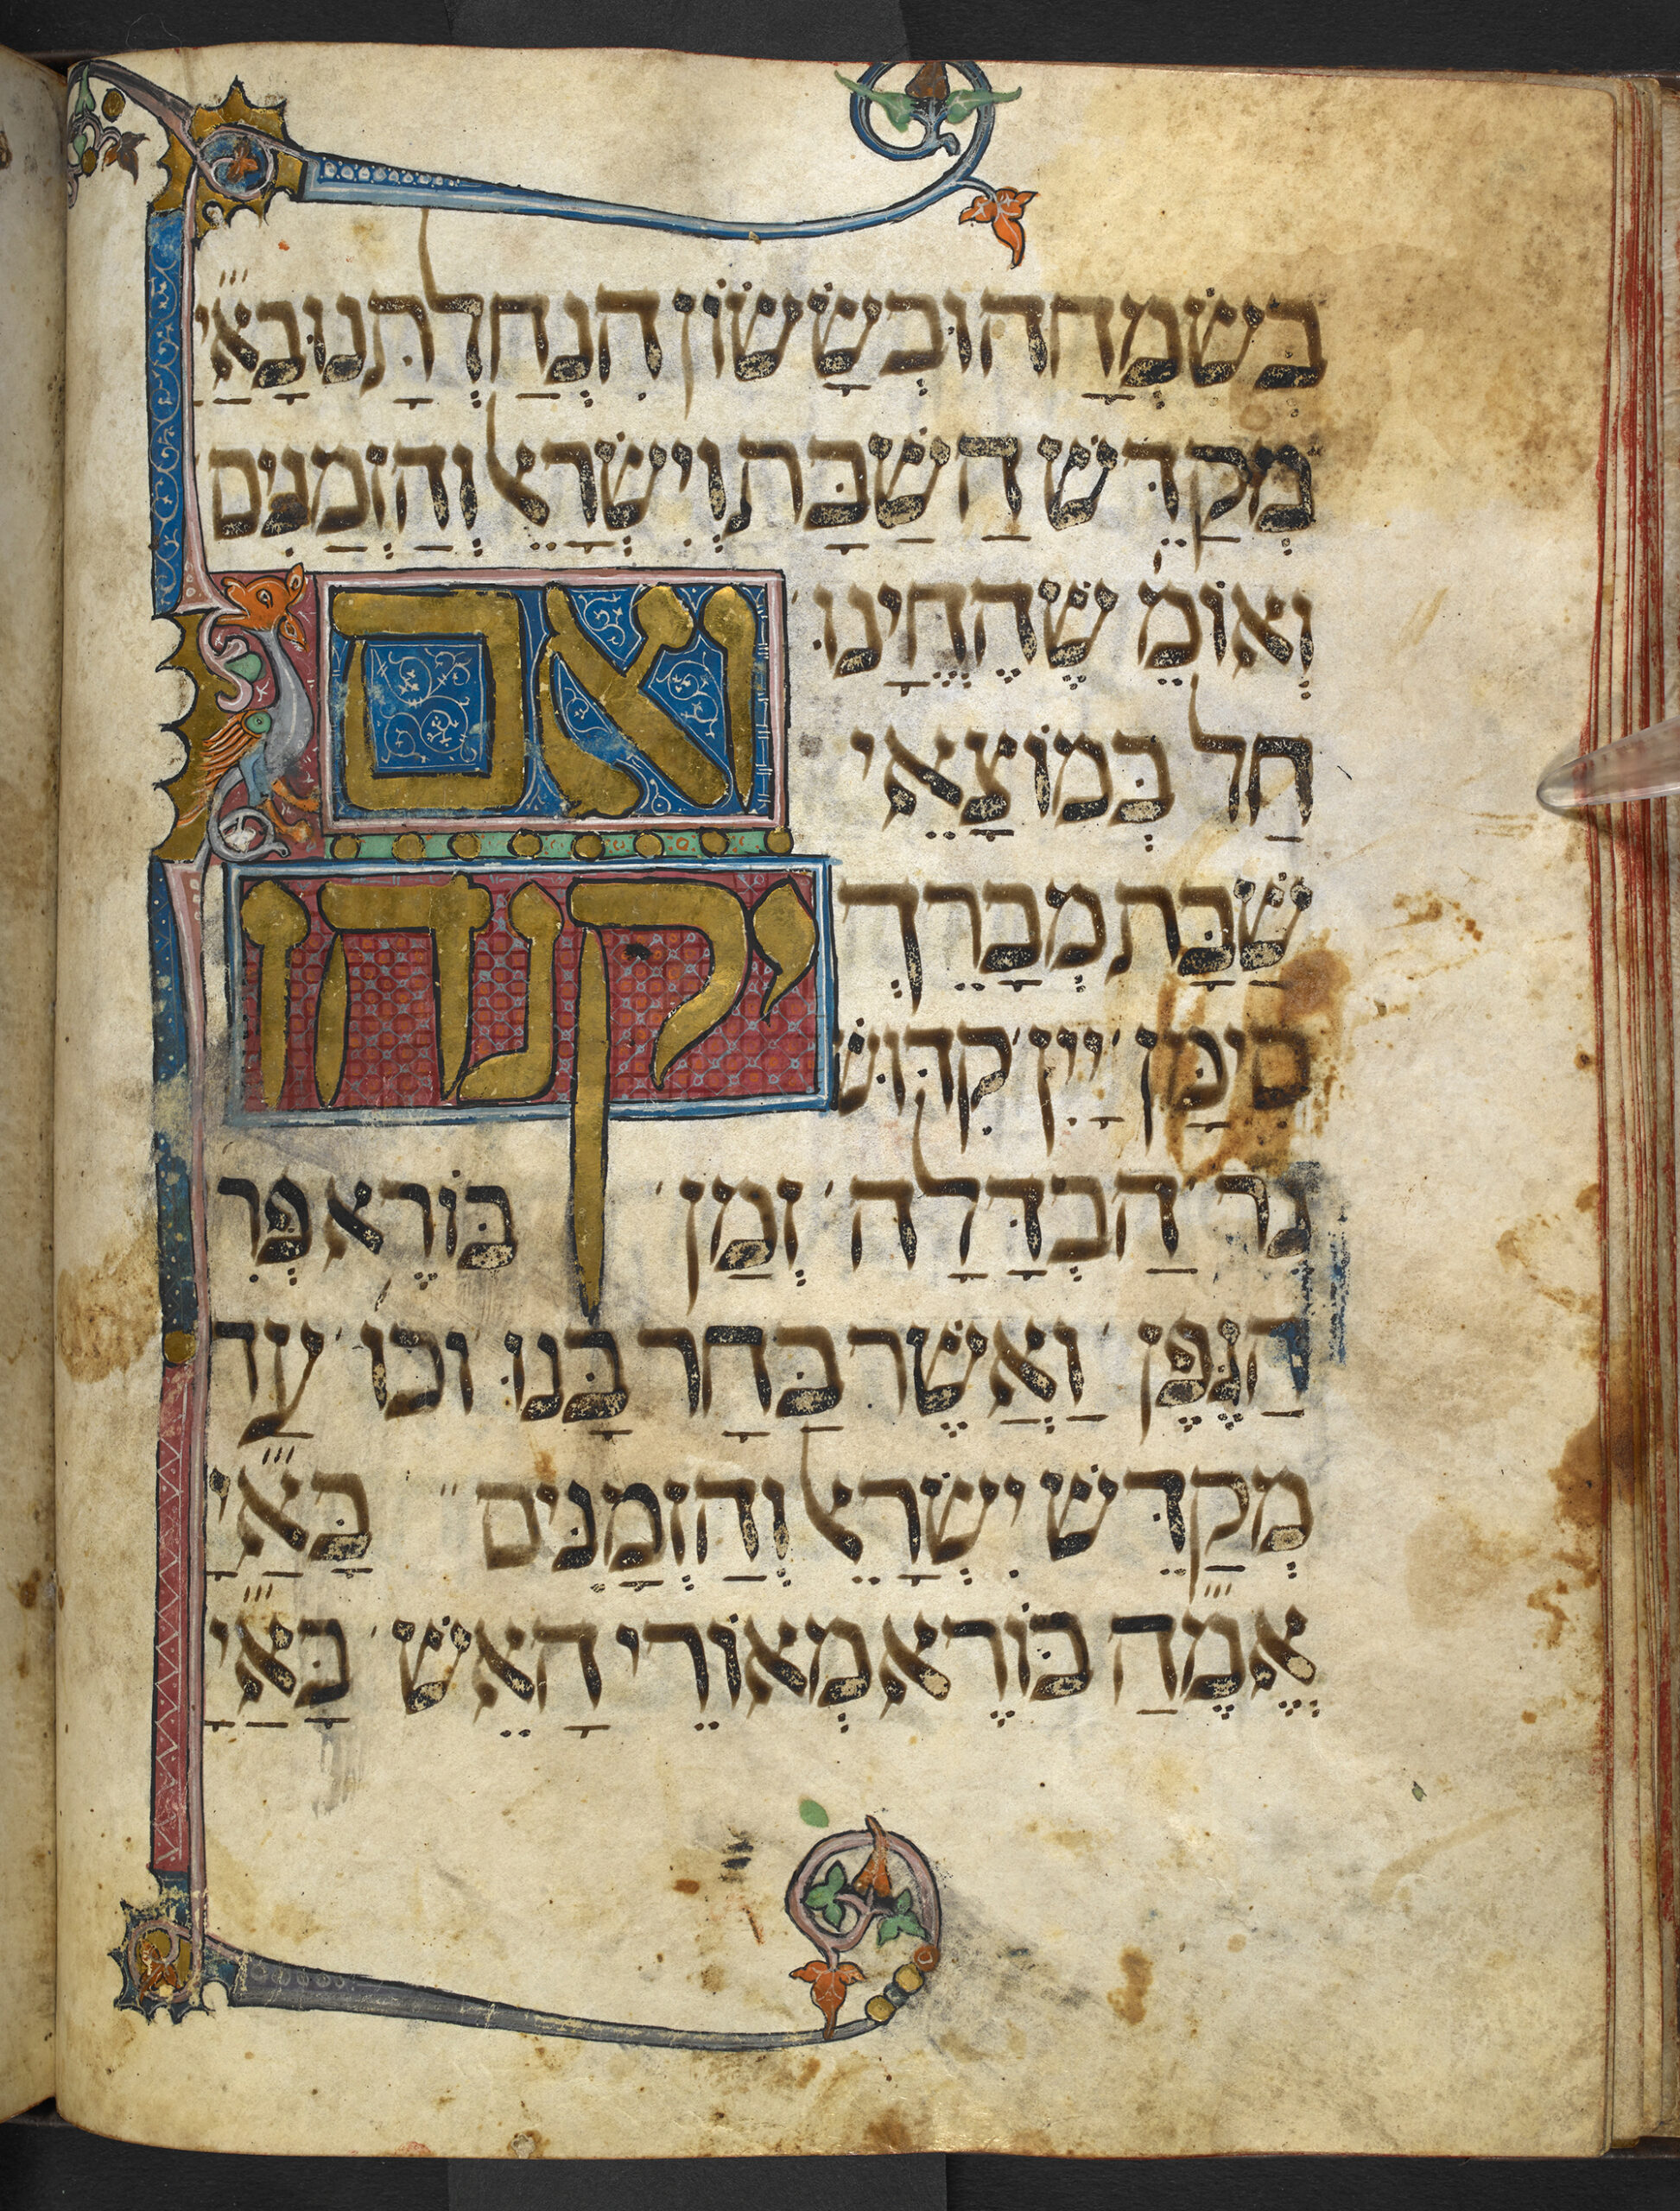 בְּשִׂמְחָה וּבְשָׂשׂוֹן הִנְחַלְתָּנוּ בָּאַיָ
מְקַדֵּשׁ הַשַּׁבָּת וְיִשְׂרָאֵל וְהַזְּמַנִּים
וְאוֹמֵ׳ שֶׁהֶחֱיָנוּ׳
ואם
חַל בְּמוֹצָאֵי
שַׁבָּת מְבָרֵךְ
יקנהז
סִימָּן׳ יַיִן׳ קִדּוּשׁ
נֵר׳ הַבְדָּלָה׳ זְמַן׳ בּוֹרֵא פְּרִ
הַגֶּפֶן׳ וַאֲשֶׁר בָּחַר בָּנוּ׳ וכו׳ עַד
מְקַדֵּשׁ יִשְׂרָאֵל וְהַזְּמַנִּים״ בָּאַיָ
אֱמֶהַ בּוֹרֵא מְאוֹרֵי הָאֵשׁ׳ בָּאַיָ